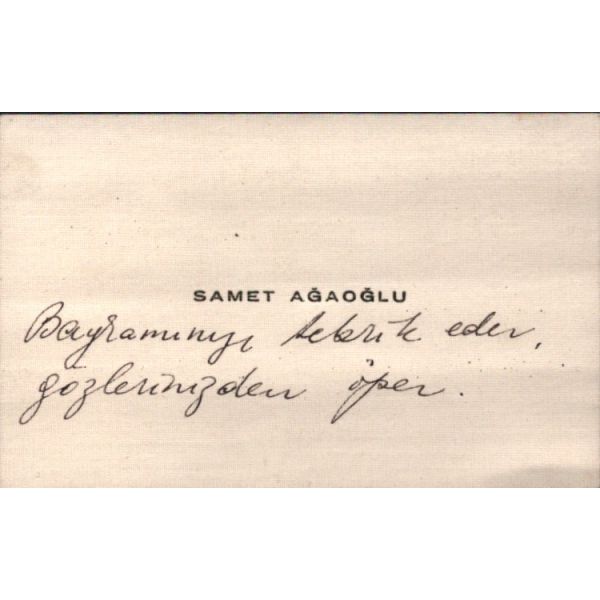 SAMET AĞAOĞLU
Bayramınızı tebrik eder,
gözlerinizden öper.